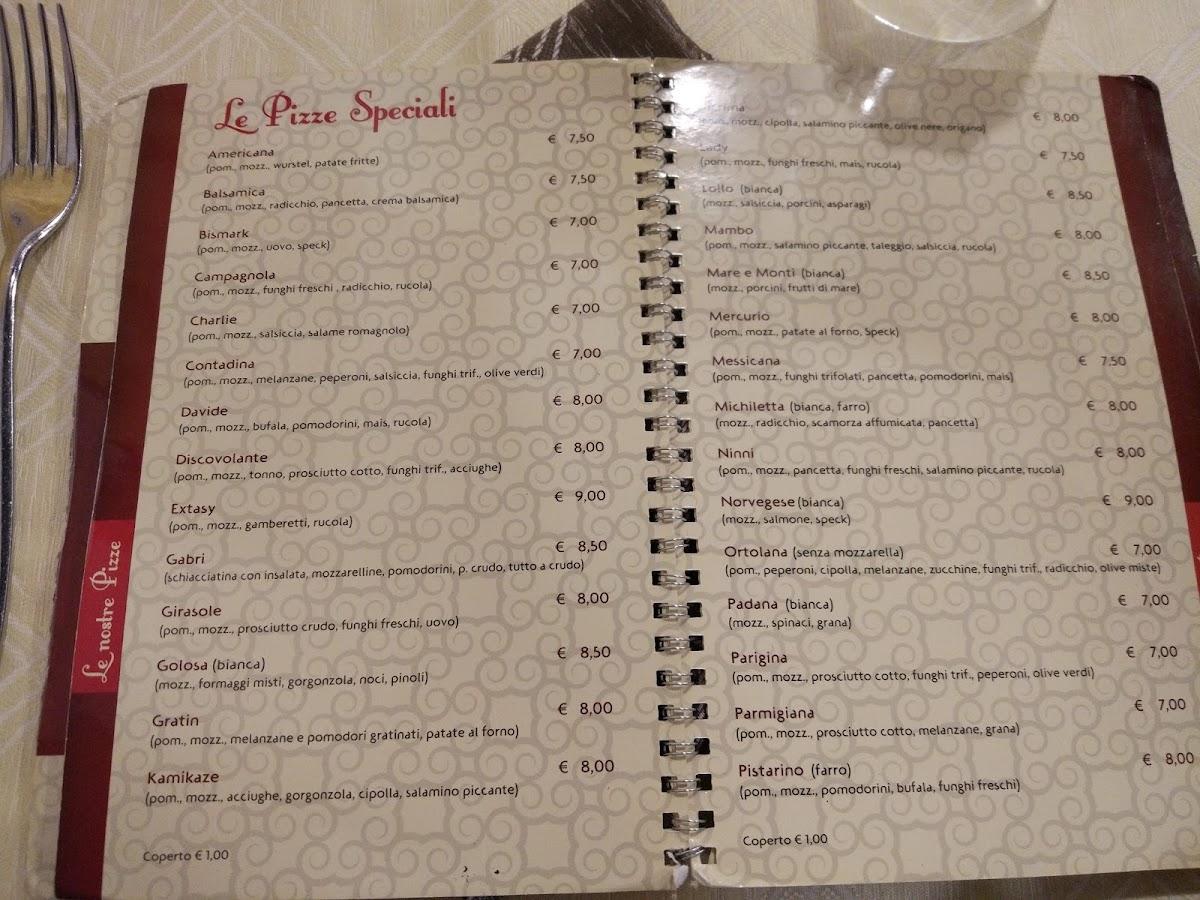 Le Pizze Speciali
Americana € 7,50
(pom., mozz., wurstel, patate fritte)
Balsamica € 7,50
(pom., mozz., radicchio, pancetta, crema balsamica)
Bismark € 7,00
(pom., mozz., uovo, speck)
Campagnola € 7,00
(pom., mozz., funghi freschi , radicchio, rucola)
Charlie € 7,00
(pom., mozz., salsiccia, salame romagnolo)
Contadina € 7,00
(pom., mozz., melanzane, peperoni, salsiccia, funghi trif., olive verdi)
Davide € 8,00
(pom., mozz., bufala, pomodorini, mais, rucola)
Discovolante € 8,00
(pom., mozz., tonno, prosciutto cotto, funghi trif., acciughe)
Extasy € 9,00
(pom., mozz., gamberetti, rucola)
Gabri € 8,50
(schiacciatina con insalata, mozzarelline, pomodorini, p. crudo, tutto a crudo)
Girasole € 8,00
(pom., mozz., prosciutto crudo, funghi freschi, uovo)
Golosa (bianca) € 8,50
(mozz., formaggi misti, gorgonzola, noci, pinoli)
Gratin € 8,00
(pom., mozz., melanzane e pomodori gratinati, patate al forno)
Kamikaze € 8,00
(pom., mozz., acciughe, gorgonzola, cipolla, salamino piccante)
Coperto € 1,00
Le nostre Pizze
€ 8,00
mozz., cipolla, salamino piccante, olive nere, origano)
Lady € 7,50
(pom., mozz., funghi freschi, mais, rucola)
Lollo (bianca) € 8,50
(mozz., salsiccia, porcini, asparagi)
Mambo € 8,00
(pom., mozz., salamino piccante, taleggio, salsiccia, rucola)
Mare e Monti (bianca) € 8,50
(mozz., porcini, frutti di mare)
Mercurio € 8,00
(pom., mozz., patate al forno, Speck)
Messicana € 7,50
(pom., mozz., funghi trifolati, pancetta, pomodorini, mais)
Michiletta (bianca, farro) € 8,00
(mozz., radicchio, scamorza affumicata, pancetta)
Ninni € 8,00
(pom., mozz., pancetta, funghi freschi, salamino piccante, rucola)
Norvegese (bianca) € 9,00
(mozz., salmone, speck)
Ortolana (senza mozzarella) € 7,00
(pom., peperoni, cipolla, melanzane, zucchine, funghi trif., radicchio, olive miste)
Padana (bianca) € 7,00
(mozz., spinaci, grana)
Parigina € 7,00
(pom., mozz., prosciutto cotto, funghi trif., peperoni, olive verdi)
Parmigiana € 7,00
(pom., mozz., prosciutto cotto, melanzane, grana)
Pistarino (farro) € 8,00
(pom., mozz., pomodorini, bufala, funghi freschi)
Coperto € 1,00